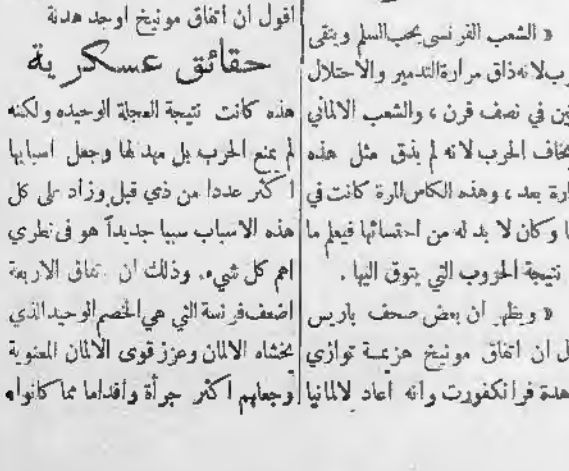 « الشعب الفرنسي يحب السلم ويتقي
رب لانه ذاق مرارة التدمير والاحتلال
ين في نصف قرن ، والشعب الالماني
يخاف الحرب لانه لم يذق مثل هذه
ارة بعد ، وهذه الكاس المرة كانت في
ا وكان لا بد له من احتسائها فيعلم ما
نتيجة الحروب التي يتوق اليها .
« ويظهر ان بعض صحف باريس
ل ان اتفاق مونيخ هزيمة توازي
هدة فرانكفورت وانه اعاد لالمانيا
اقول ان اتفاق مونيخ اوجد هدنة
حقائق عسكرية
هذه كانت نتيجة العجلة الوحيده ولكنه
لم يمنع الحرب بل مهد لها وجعل اسبابها
اكثر عددا من ذي قبل وزاد على كل
هذه الاسباب سببا جديداً هو في نظري
اهم كل شيء. وذلك ان تفاق الاربعة
اضعف فرنسة التي هي الخصم الوحيد الذي
يخشاه الالمان وعزز قوى الالمان المعنوية
وجعلهم اكثر جرأة واقداما مما كانوا